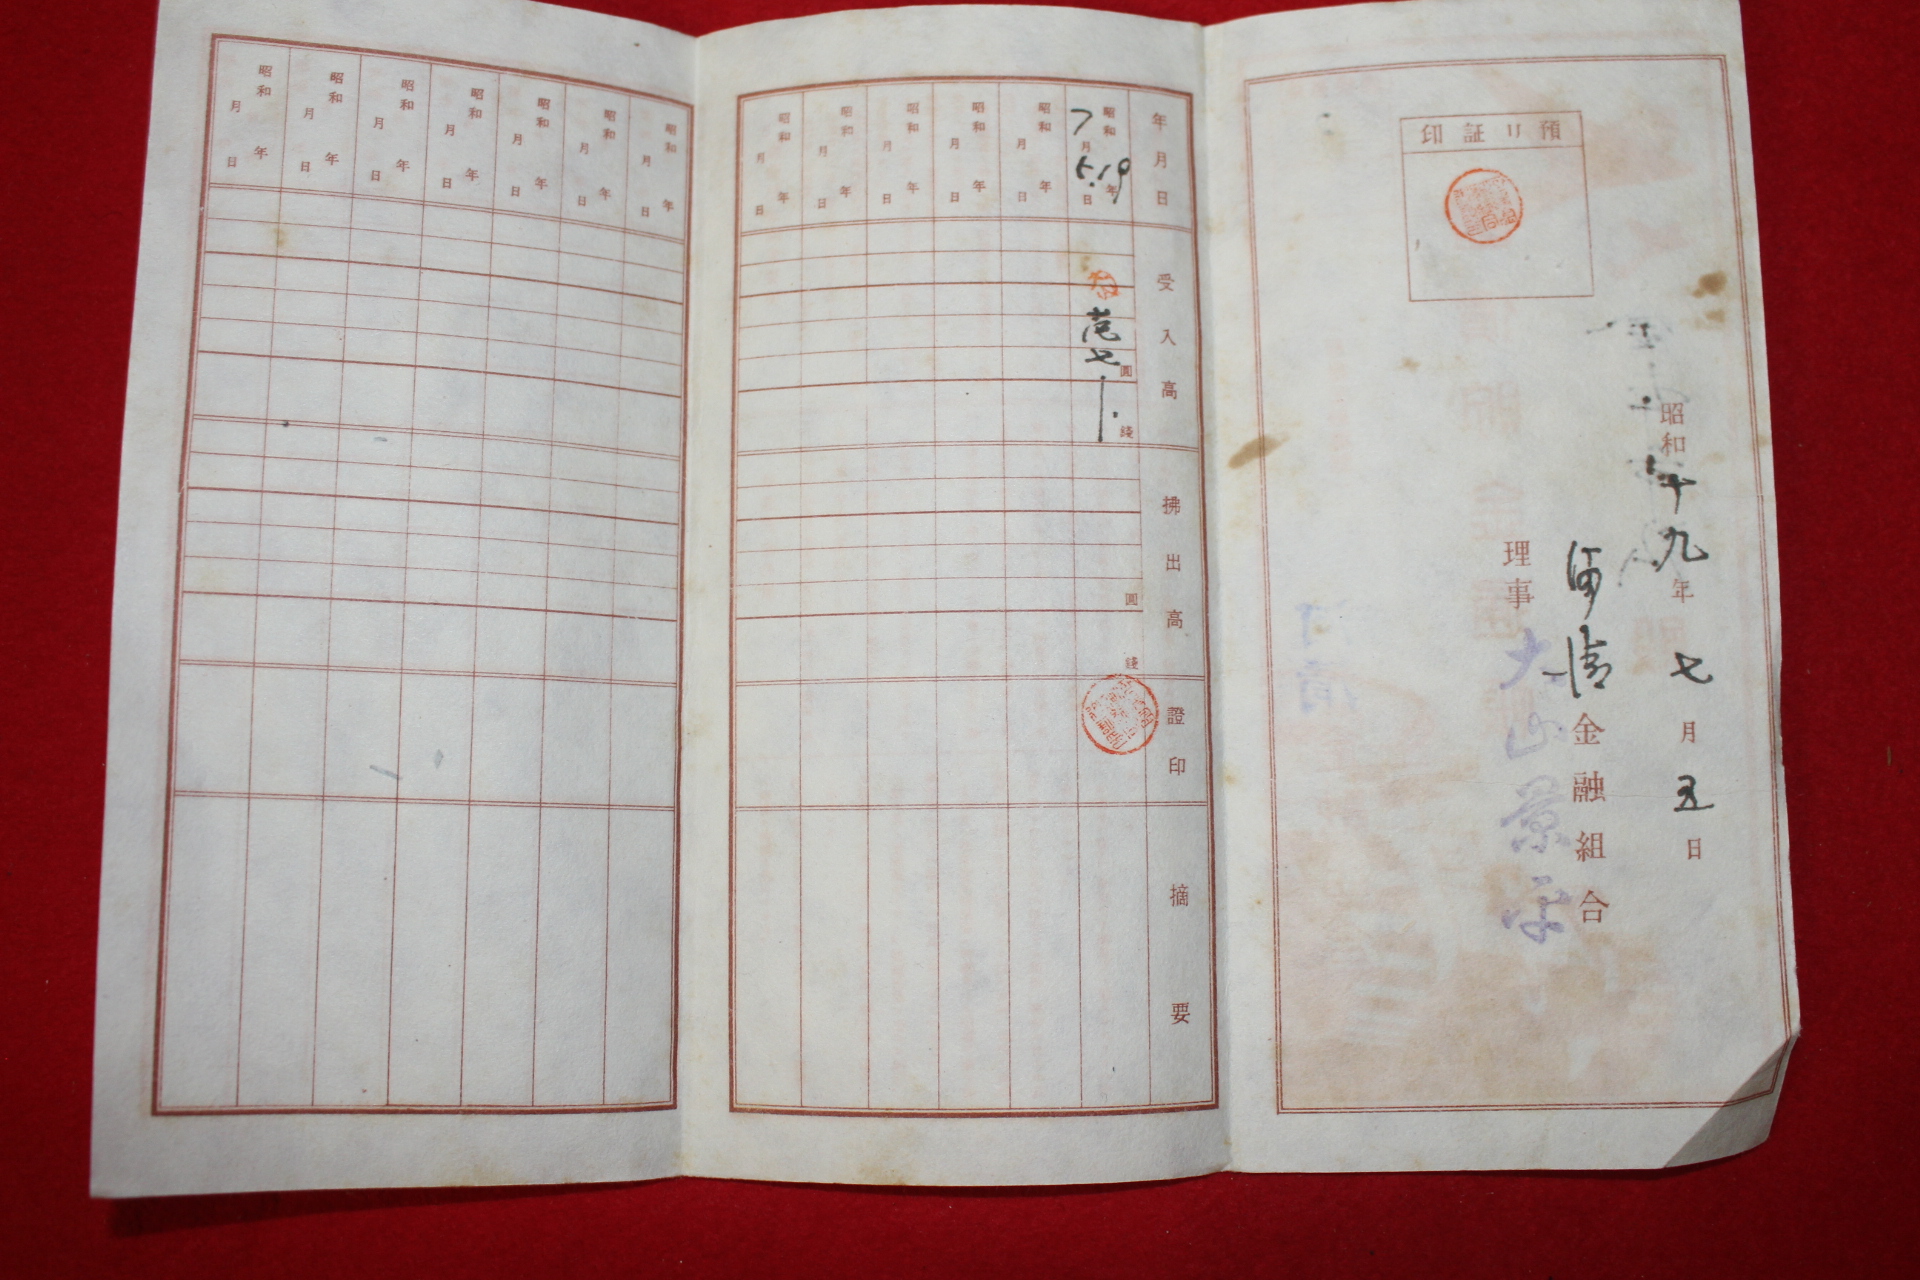 預リ証印
昭和十九年七月五日
河淸金融組合
理事 大山景平
年月日
受入高
拂出高
證印
摘要
昭和19年7月5日
圓
錢
圓
錢
昭和 年 月 日
昭和 年 月 日
昭和 年 月 日
昭和 年 月 日
昭和 年 月 日
昭和 年 月 日
昭和 年 月 日
昭和 年 月 日
昭和 年 月 日
昭和 年 月 日
昭和 年 月 日
昭和 年 月 日